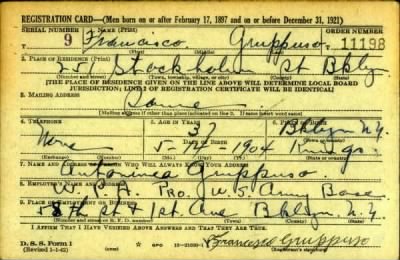 REGISTRATION CARD—(Men born on or after February 17, 1897 and on or before December 31, 1921)
SERIAL NUMBER 1. NAME (Print) ORDER NUMBER
9 Francisco Gruppuso 11198
2. PLACE OF RESIDENCE (Print)
Stockholm St Bkly
(Number and street) (Town, township, village, or city) (County) (State)
[THE PLACE OF RESIDENCE GIVEN ON THE LINE ABOVE WILL DETERMINE LOCAL BOARD
JURISDICTION; LINE 2 OF REGISTRATION CERTIFICATE WILL BE IDENTICAL]
3. MAILING ADDRESS
Same
[Mailing address if other than place indicated on line 2. If same insert word same]
4. TELEPHONE 5. AGE IN YEARS 6. PLACE OF BIRTH
37 Bklyn N.Y.
None DATE OF BIRTH
1904
(Exchange) (Number) (Mo.) (Day) (Yr.) (State or country)
7. NAME AND ADDRESS OF PERSON WHO WILL ALWAYS KNOW YOUR ADDRESS
Gruppuso
8. EMPLOYER'S NAME AND ADDRESS
W.P.A. Pro. U.S. Army Base
9. PLACE OF EMPLOYMENT OR BUSINESS
58th St & 1st Ave Bklyn N.Y.
(Number and street or R. F. D. number) (Town) (County) (State)
I AFFIRM THAT I HAVE VERIFIED ABOVE ANSWERS AND THAT THEY ARE TRUE.
D. S. S. Form 1
(Revised 1-1-42) GPO Francesco Gruppuso